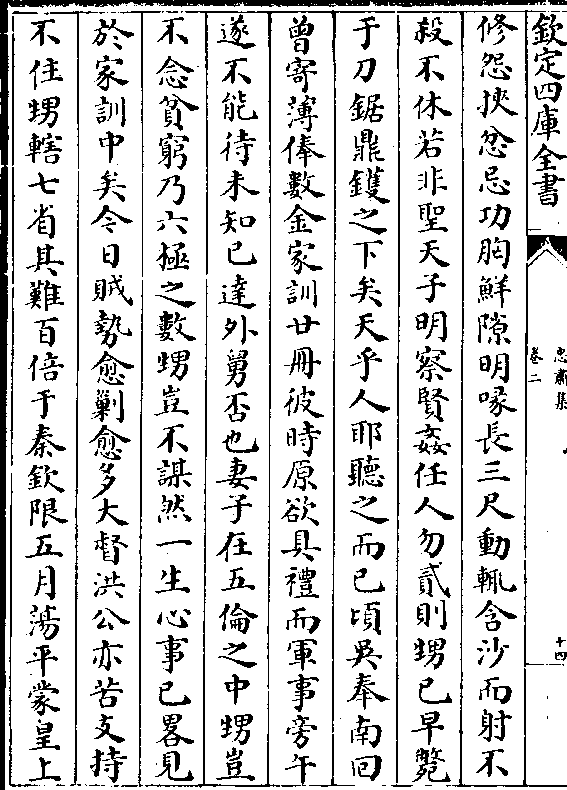 欽定四庫全書
忠肅集
卷二
十四
修怨挾忿忌功胸鮮隙明喙長三尺動輒含沙而射不
殺不休若非聖天子明察賢奸任人勿貳則甥已早斃
于刀鋸鼎鑊之下矣天乎人耶聽之而已頃吳奉南回
曾寄薄俸數金家訓廿冊彼時原欲具禮而軍事旁午
遂不能待未知已達外舅否也妻子在五倫之中甥豈
不念貧窮乃六極之數甥豈不謀然一生心事已畧見
於家訓中矣今日賊勢愈剿愈多大督洪公亦苦支持
不住甥轄七省其難百倍于秦欽限五月蕩平蒙皇上